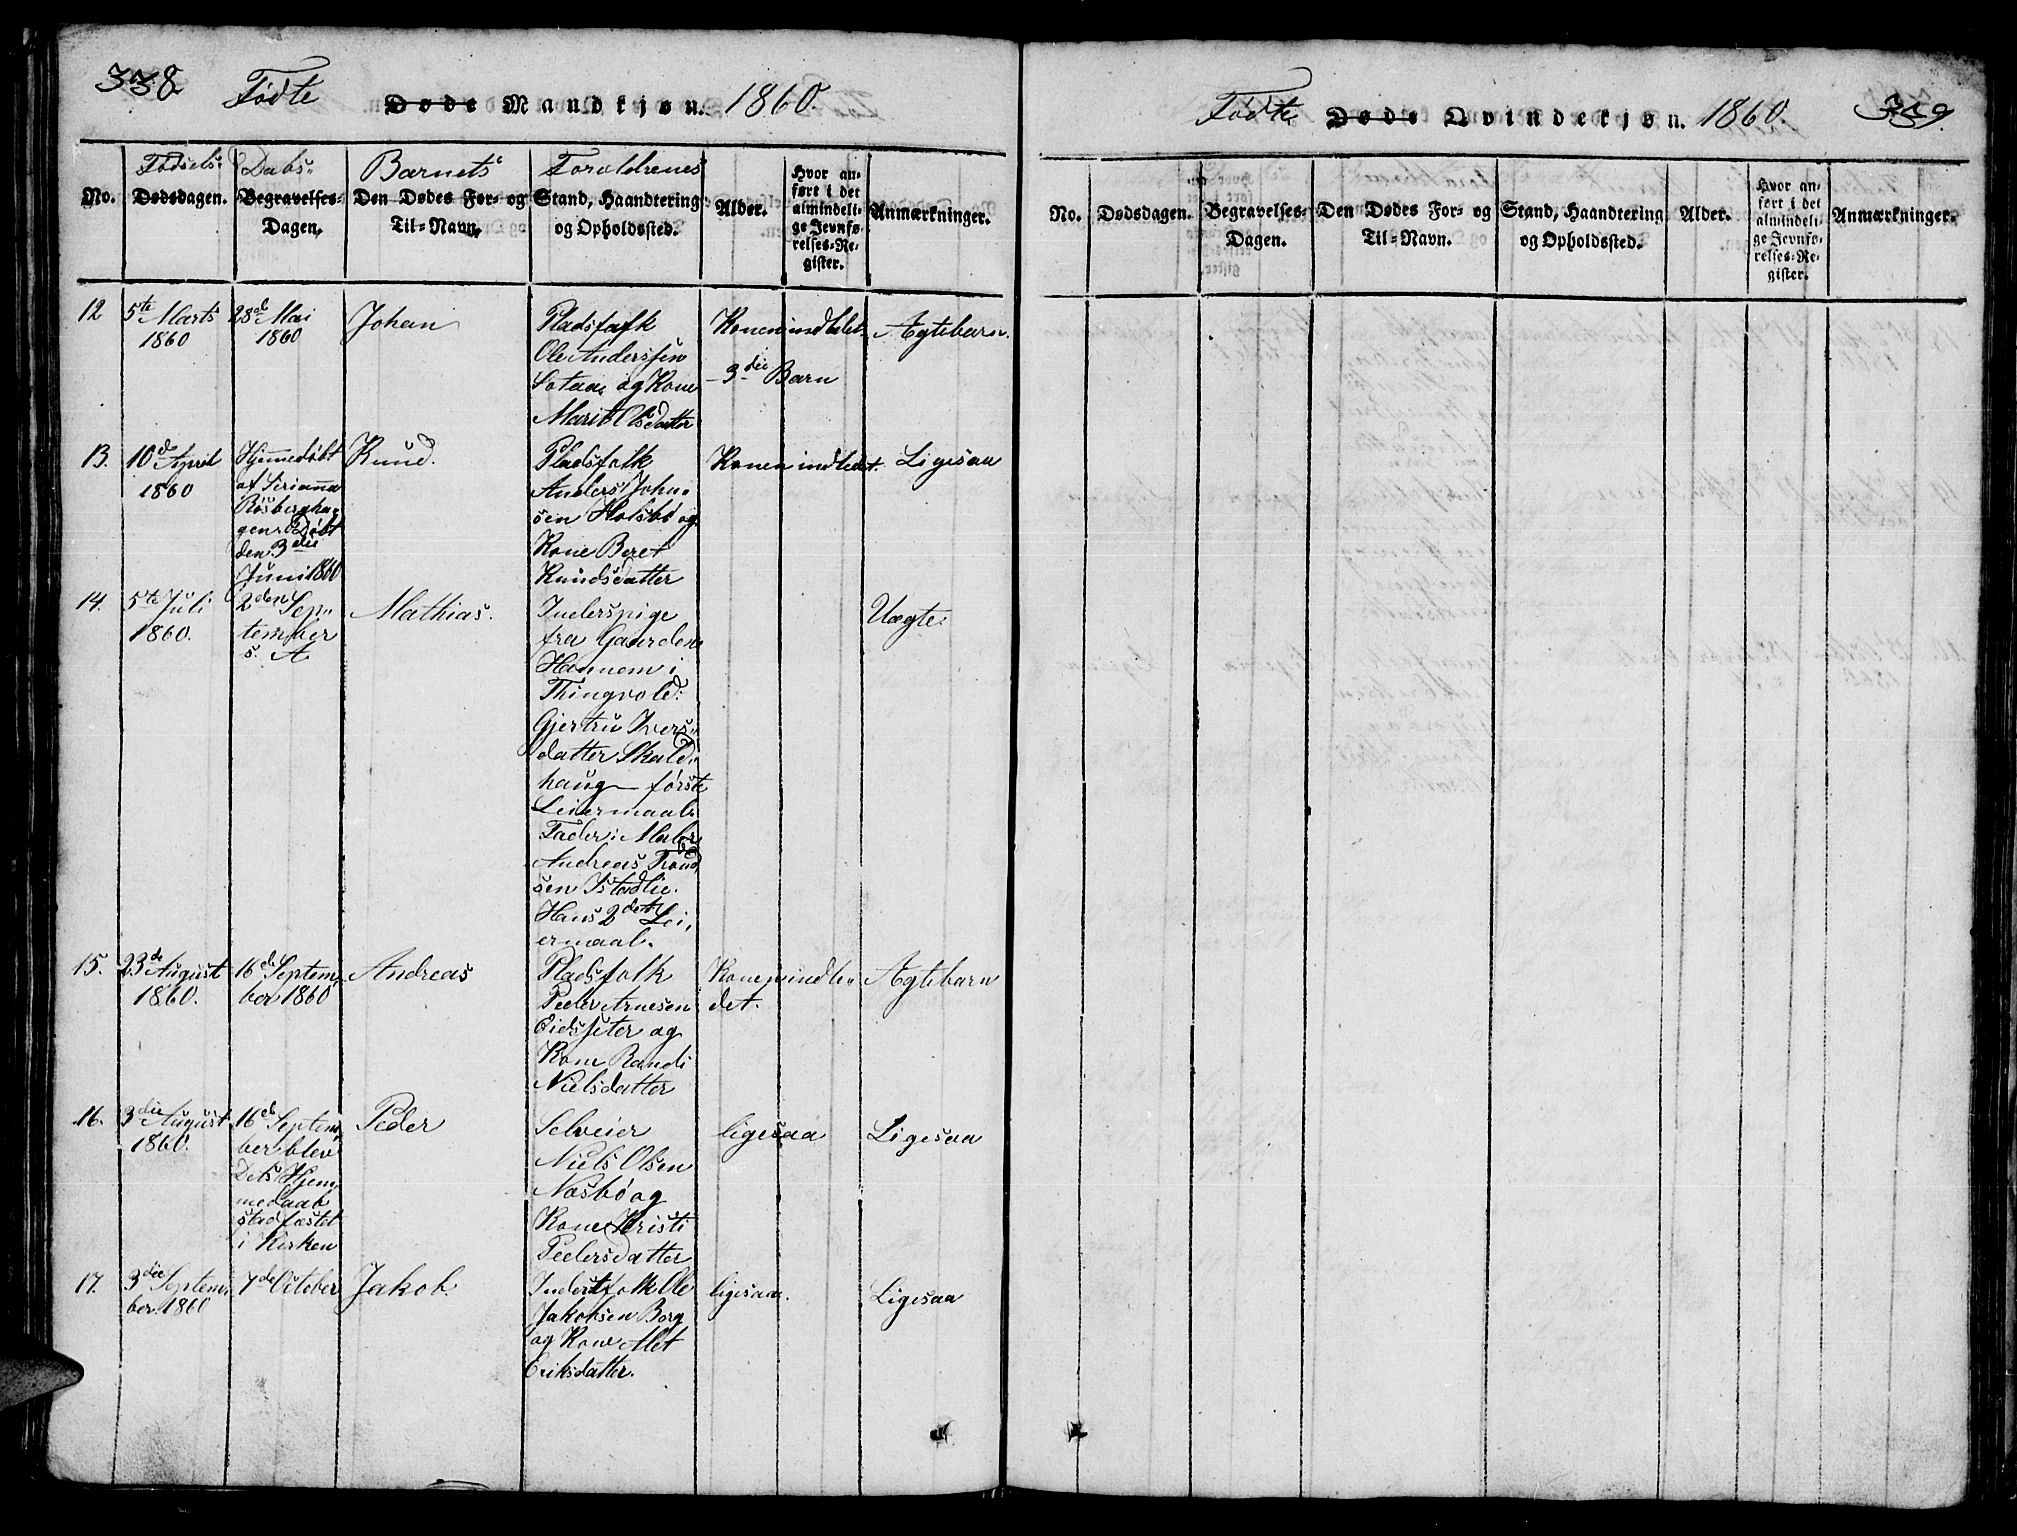 338
Fødte Døde Mandkjøn. 1860.
Fødsels- Daabs- Barnets Forældrenes
No. Dødsdagen. Begravelses-Dagen. Den Dødes For- og Til-Navn. Stand, Haandtering og Opholdssted. Alder. Hvor anført i det almindelige Jevnførelses-Register. Anmærkninger.
12 5te Marts 1860
28de Mai 1860
Johan
Pladsfolk
Ole Anderssen
og Kone
Marit Olsdatter
Konen indledet
3die Barn
Ægtebarn
13. 10de April 1860
Hjemmedøbt
af
Døbt
den 3die
Juni 1860
Knud.
Pladsfolk
Anders John-
sen Holsbø og
Kone Beret
Knudsdatter
Konen indledet.
Ligesaa
14. 5te Juli 1860.
2den Sep-
tember
s. A
Mathias.
Inderspige
fra Gaarden
Hannem i
Thingvold:
Gjertru Ivers-
datter Skald-
haug – første
Leiermaal.
Fader: Maler
Andreas Trond-
sen
Hans 2det Lei-
ermaal.
Uægte.
15. 23de August 1860.
16de Septem-
ber 1860
Andreas
Pladsfolk
Peder Arnesen
Eidssæter og
Kone Randi
Nielsdatter
Konen indle-
det.
Ægtebarn
16. 3die August 1860.
16de Septem-
ber blev
Dets Hjem-
medaab
stadfæstet
i Kirken
Peder
Selveier
Niels Olsen
Næsbø og
Kone Kristi
Pedersdatter
ligesaa
Ligesaa
17. 3die Septem-
ber 1860
7de October
Jakob
Inderstfolk Ole
Jakobsen Borg
og Kone Alet
Eriksdatter.
ligesaa.
Ligesaa
339.
Fødte Døde Qvindekjøn. 1860.
No. Dødsdagen. Begravelses-Dagen. Den Dødes For- og Til-Navn. Stand, Haandtering og Opholdssted. Alder. Hvor anført i det almindelige Jevnførelses-Register. Anmærkninger.